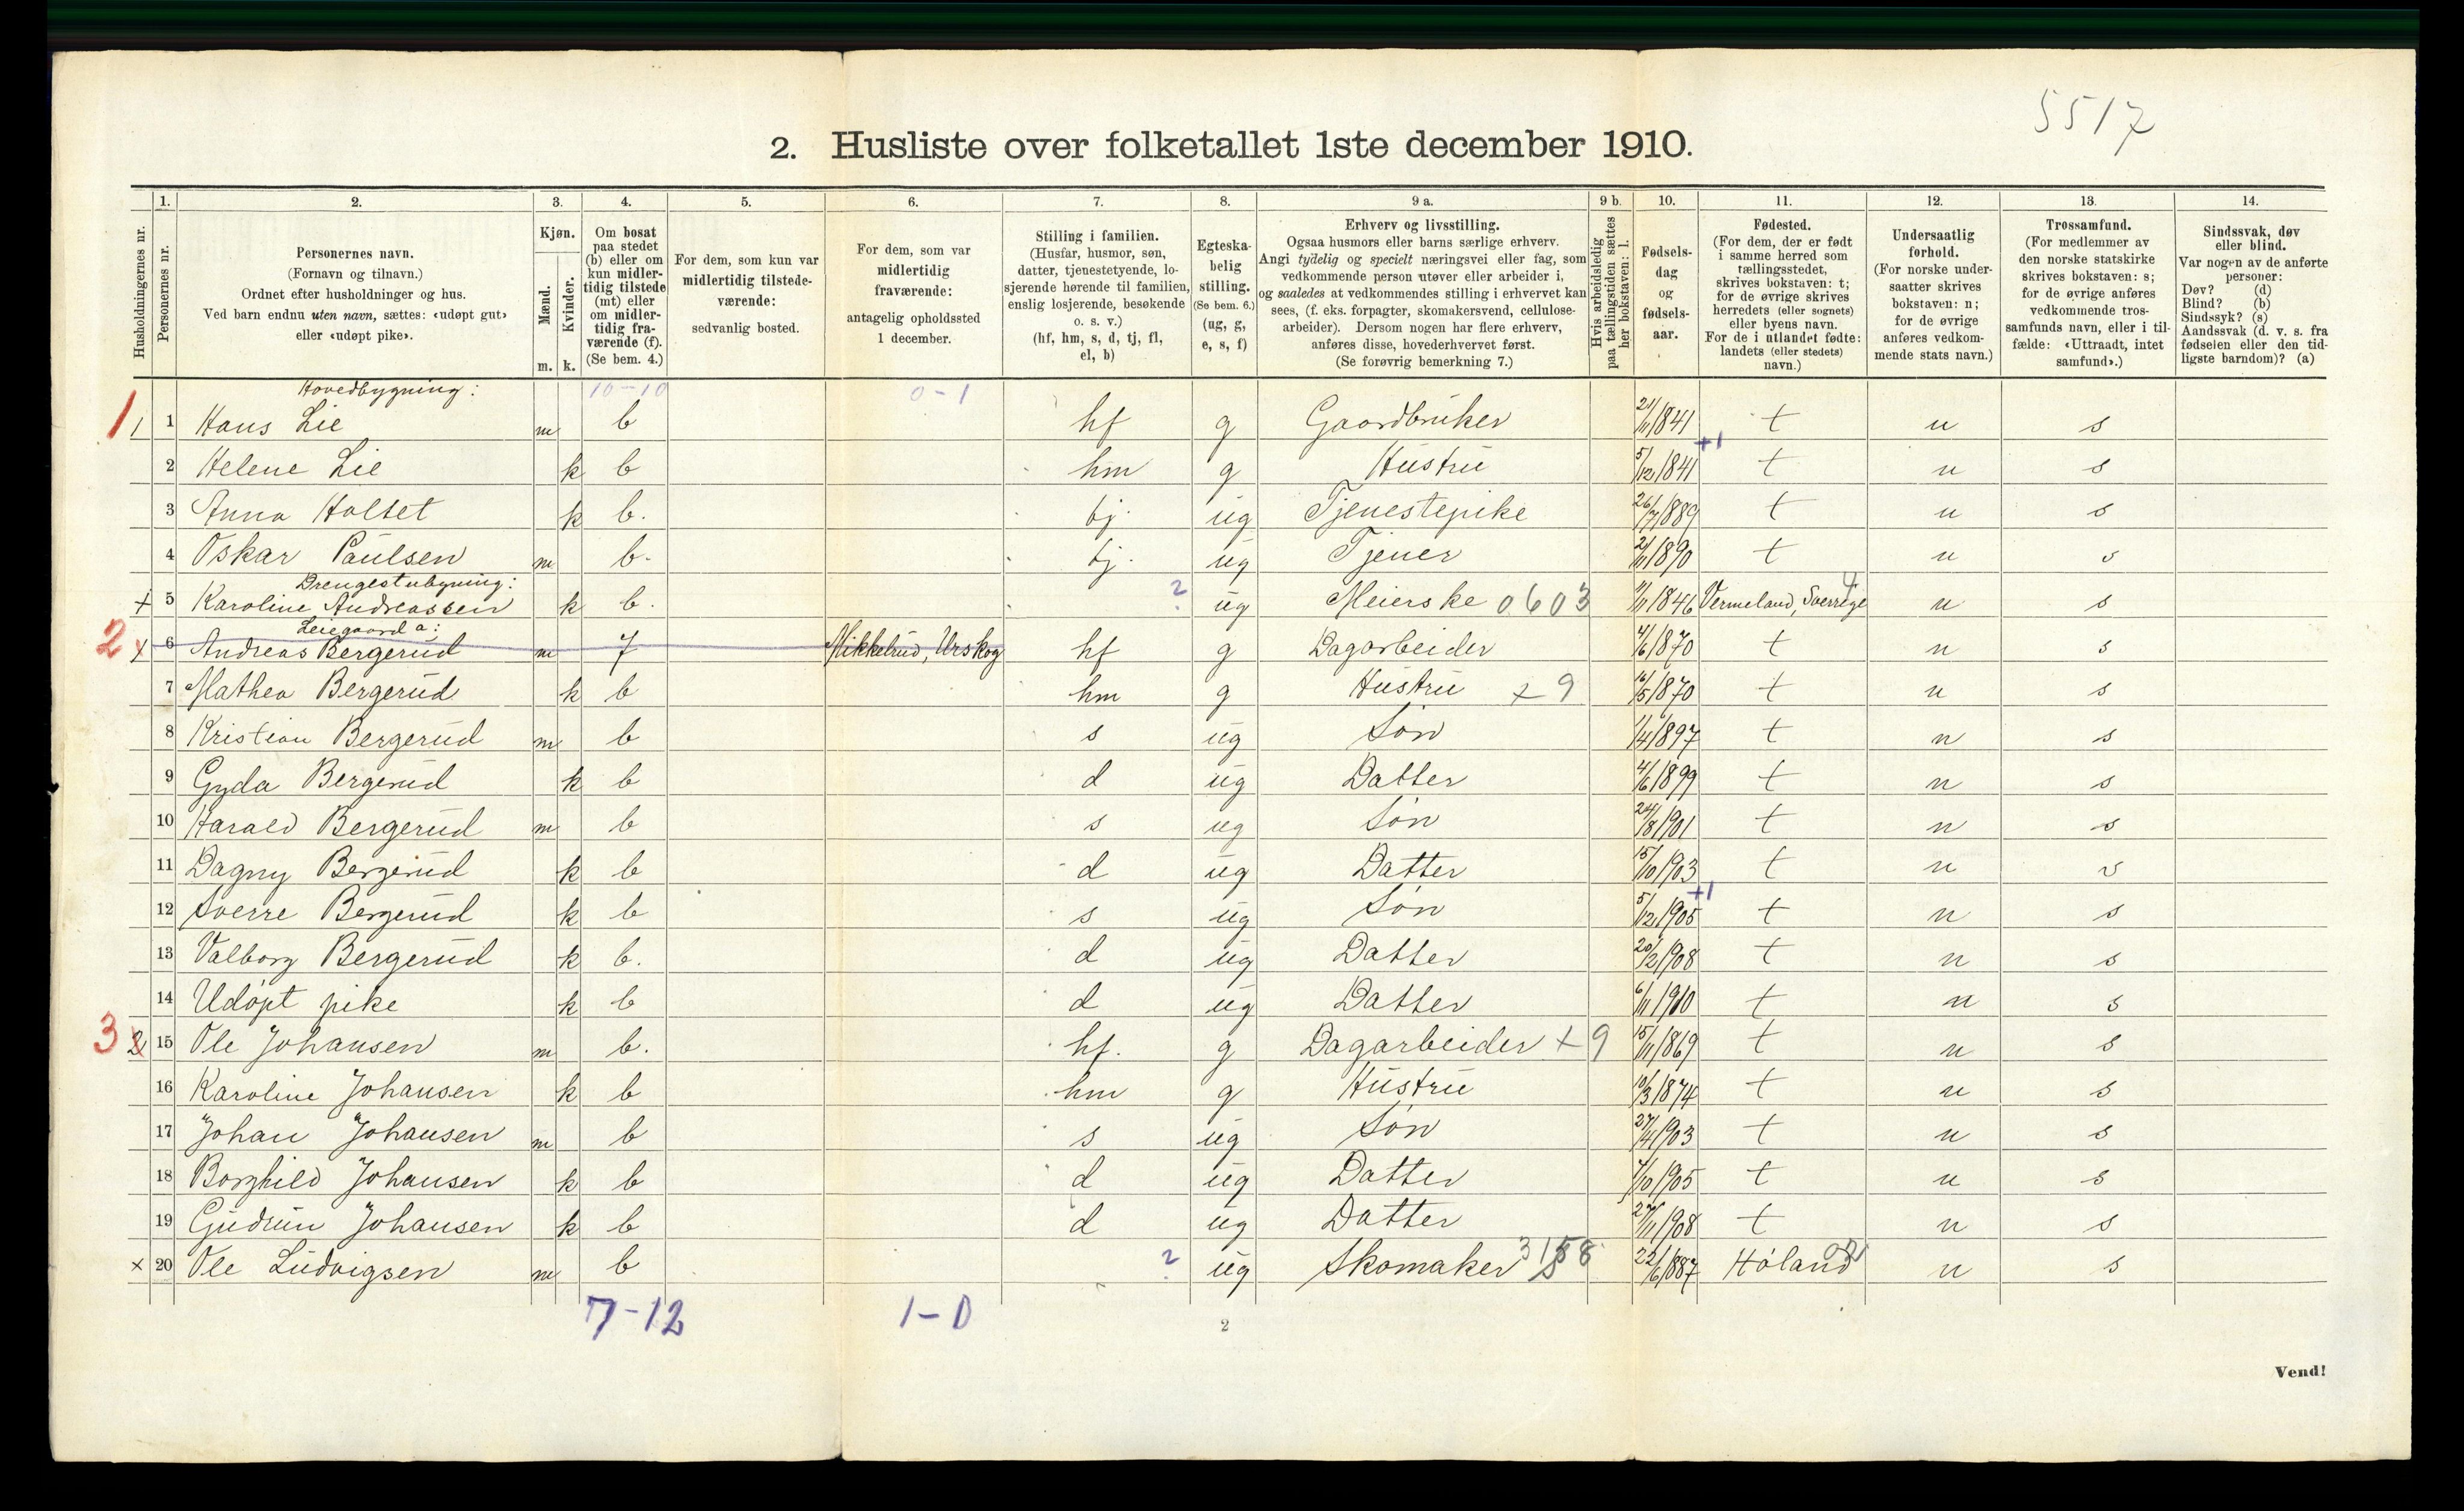 5517
2. Husliste over folketallet 1ste december 1910.
Husholdningernes nr.
1. Personernes nr.
2. Personernes navn.
(Fornavn og tilnavn.)
Ordnet efter husholdninger og hus.
Ved barn endnu uten navn, sættes: «udøpt gut»
eller «udøpt pike».
3. Kjøn.
Mænd. m.
Kvinder. k.
4. Om bosat
paa stedet
(b) eller om
kun midler-
tidig tilstede
(mt) eller
om midler-
tidig fra-
værende (f).
(Se bem. 4.)
5. For dem, som kun var
midlertidig tilstede-
værende:
sedvanlig bosted.
6. For dem, som var
midlertidig
fraværende:
antagelig opholdssted
1 december.
7. Stilling i familien.
(Husfar, husmor, søn,
datter, tjenestetyende, lo-
sjerende hørende til familien,
enslig losjerende, besøkende
o. s. v.)
(hf, hm, s, d, tj, fl,
el, b)
8. Egteska-
belig
stilling.
(Se bem. 6.)
(ug, g,
e, s, f)
9 a. Erhverv og livsstilling.
Ogsaa husmors eller barns særlige erhverv.
Angi tydelig og specielt næringsvei eller fag, som
vedkommende person utøver eller arbeider i,
og saaledes at vedkommendes stilling i erhvervet kan
sees, (f. eks. forpagter, skomakersvend, cellulose-
arbeider). Dersom nogen har flere erhverv,
anføres disse, hovederhvervet først.
(Se forøvrig bemerkning 7.)
9 b. Hvis arbeidsledig
paa tællingstiden sættes
her bokstaven: l.
10. Fødsels-
dag
og
fødsels-
aar.
11. Fødested.
(For dem, der er født
i samme herred som
tællingsstedet,
skrives bokstaven: t;
for de øvrige skrives
herredets (eller sognets)
eller byens navn.
For de i utlandet fødte:
landets (eller stedets)
navn.)
12. Undersaatlig
forhold.
(For norske under-
saatter skrives
bokstaven: n;
for de øvrige
anføres vedkom-
mende stats navn.)
13. Trossamfund.
(For medlemmer av
den norske statskirke
skrives bokstaven: s;
for de øvrige anføres
vedkommende tros-
samfunds navn, eller i til-
fælde: «Uttraadt, intet
samfund».)
14. Sindssvak, døv
eller blind.
Var nogen av de anførte
personer:
Døv? (d)
Blind? (b)
Sindssyk? (s)
Aandssvak (d. v. s. fra
fødselen eller den tid-
ligste barndom)? (a)
Hovedbygning: 10-10 0-1
1 1 1 Hans Lie m b hf g Gaardbruker 21/11 1841 t n s
2 Helene Lie k b hm g Hustru 5/12 1841 +1 t n s
3 Anna Holtet k b. tj. ug Tjenestepike 26/7 1889 t n s
4 Oskar Paulsen m b. tj. ug Tjener 2/11 1890 t n s
Drengestubygning:
+ 5 Karoline Andreassen k b. ? ug Meierske 0603 1846 Vermeland, Sverrige n s
Leiegaard a:
2 x 6 Andreas Bergerud m f Mikkelrud, Urskog hf g Dagarbeider 4/6 1870 t n s
7 Mathea Bergerud k b hm g Hustru x9 16/5 1870 t n s
8 Kristian Bergerud m b s ug Søn 1/4 1897 t n s
9 Gyda Bergerud k b d ug Datter 4/6 1899 t n s
10 Harald Bergerud m b s ug Søn 24/8 1901 t n s
11 Dagny Bergerud k b d ug Datter 15/10 1903 t n s
12 Sverre Bergerud k b s ug Søn 5/12 1905 +1 t n s
13 Valborg Bergerud k b. d ug Datter 20/2 1908 t n s
14 Udøpt pike k b d ug Datter 6/11 1910 t n s
3 2 15 Ole Johansen m b. hf. g Dagarbeider x9 15/11 1869 t n s
16 Karoline Johansen k b hm g Hustru 10/3 1874 t n s
17 Johan Johansen m b s ug Søn 27/4 1903 t n s
18 Borghild Johansen k b d ug Datter 7/10 1905 t n s
19 Gudrun Johansen k b d ug Datter 27/11 1908 t n s
x 20 Ole Ludvigsen m b ? ug Skomaker 22/6 1887 Høland n s
7-12 1-0
2
Vend!